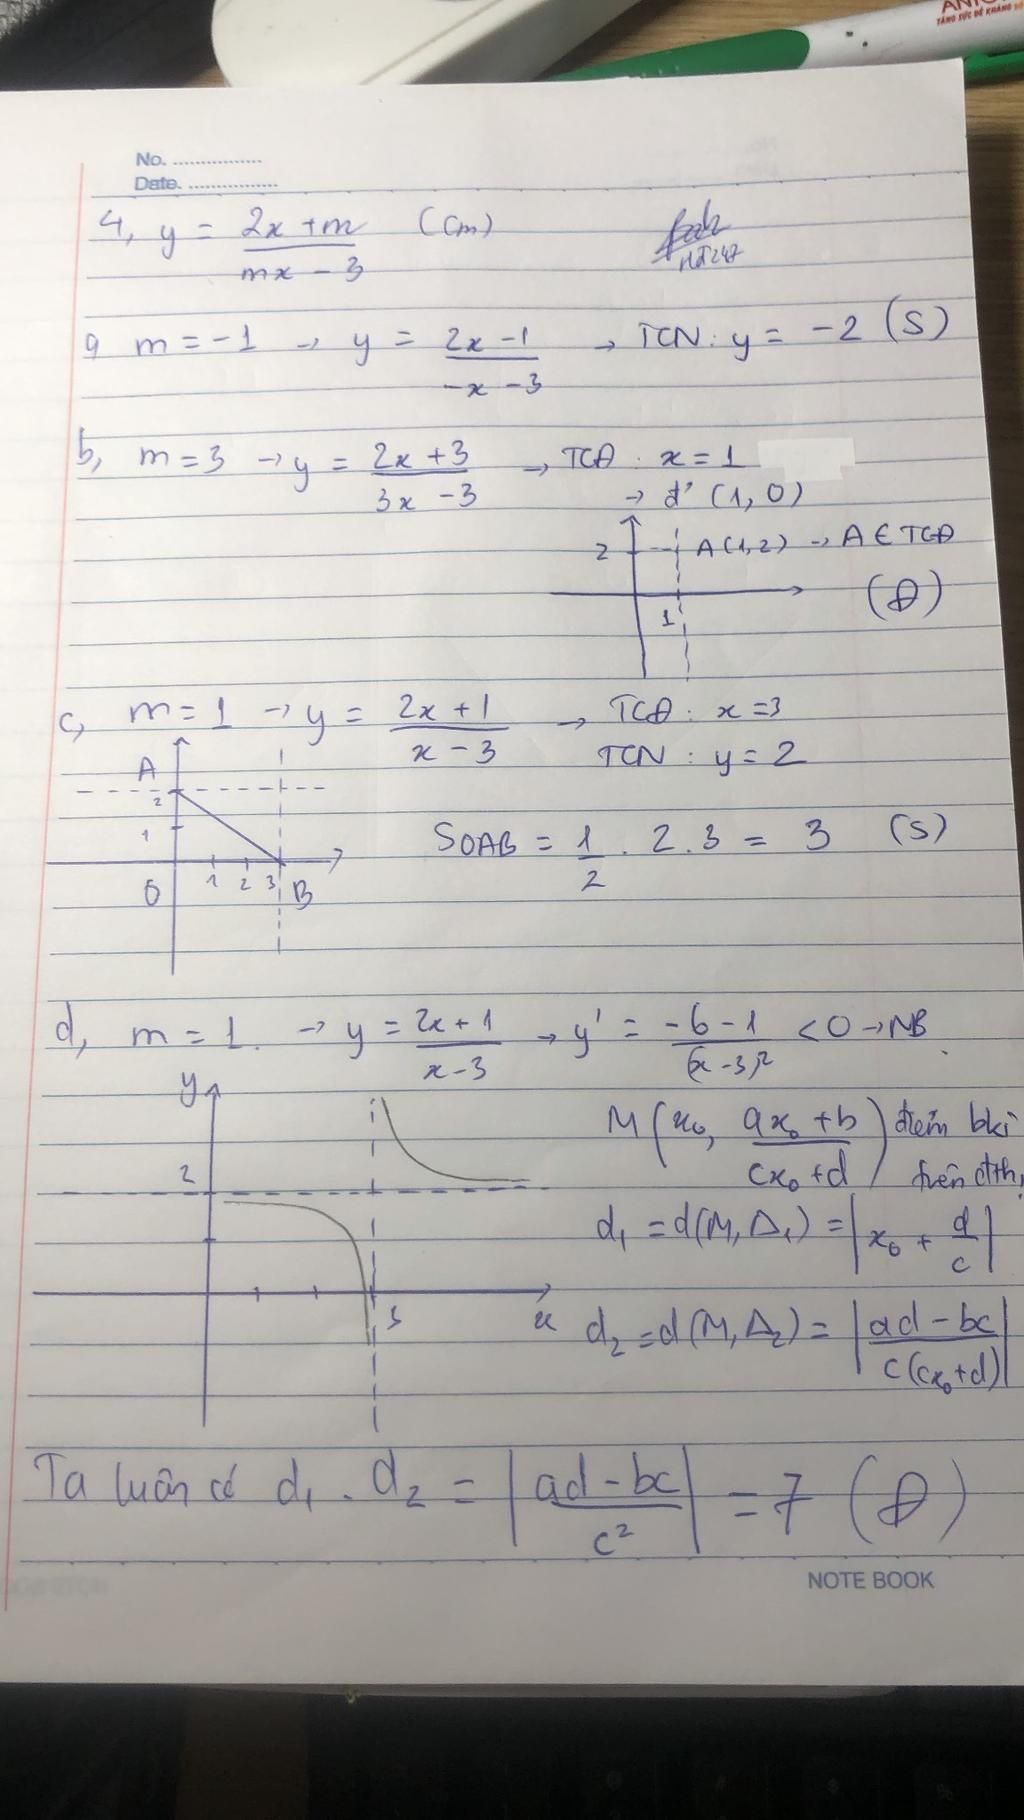 ANTI
TĂNG SỨC ĐỀ KHÁNG
No. ................
Date. ................
4, y = (2x + m)/(mx - 3) (Cm)
HT247
a, m = -1 → y = (2x - 1)/(-x - 3) → TCN: y = -2 (S)
b, m = 3 → y = (2x + 3)/(3x - 3) → TCĐ: x = 1
→ đ' (1, 0)
2 A(1,2) → A ∈ TCĐ
(Đ)
1
c, m = 1 → y = (2x + 1)/(x - 3) → TCĐ: x = 3
TCN: y = 2
A
2
1
SOAB = 1/2 . 2 . 3 = 3 (S)
O 1 2 3 B
d, m = 1. → y = (2x + 1)/(x - 3) → y' = (-6 - 1)/(x - 3)² < 0 → NB
y
M(x₀, (ax₀ + b)/(cx₀ + d)) điểm bkì
trên đth,
2
d₁ = d(M, Δ₁) = |x₀ + d/c|
3 x
d₂ = d(M, Δ₂) = |(ad - bc)/(c(cx₀ + d))|
Ta luôn có d₁ . d₂ = |(ad - bc)/c²| = 7 (Đ)
NOTE BOOK